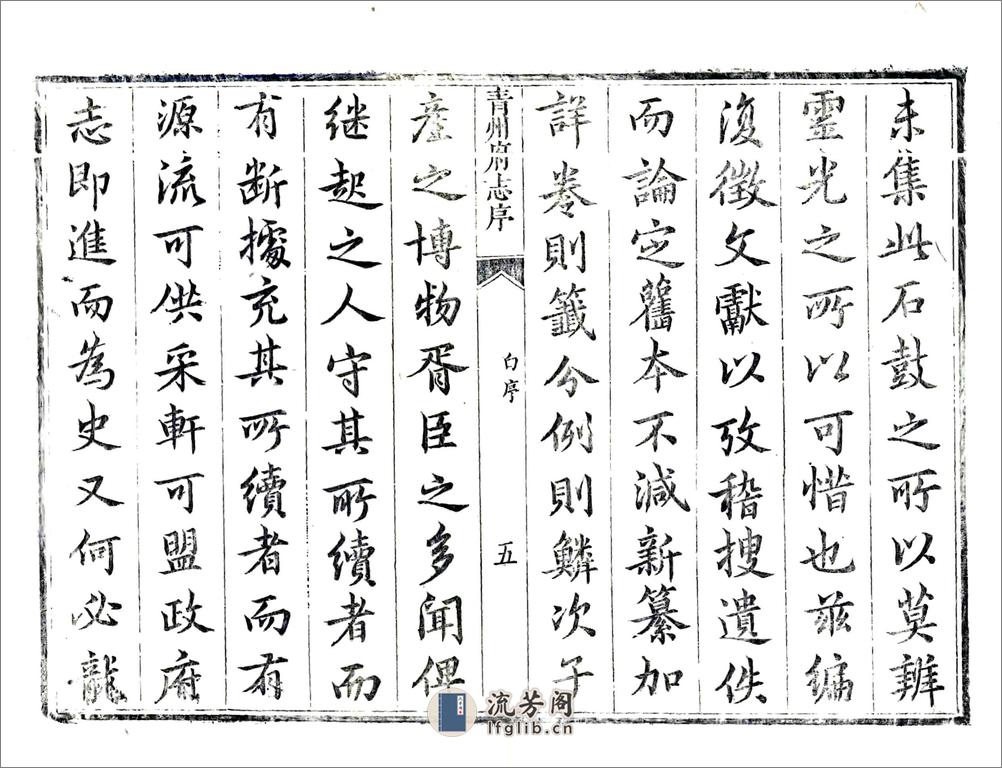 未集此石鼓之所以莫辨
靈光之所以可惜也茲编
復徵文獻以攷稽搜遺佚
而論定舊本不減新纂加
詳卷則籤分例則鱗次子
青州府志序
白序
五
產之博物胥臣之多聞俾
继起之人守其所續者而
有断擴充其所續者而有
源流可供采軒可盟政府
志即進而為史又何必龍
流芳阁
lfglib.cn